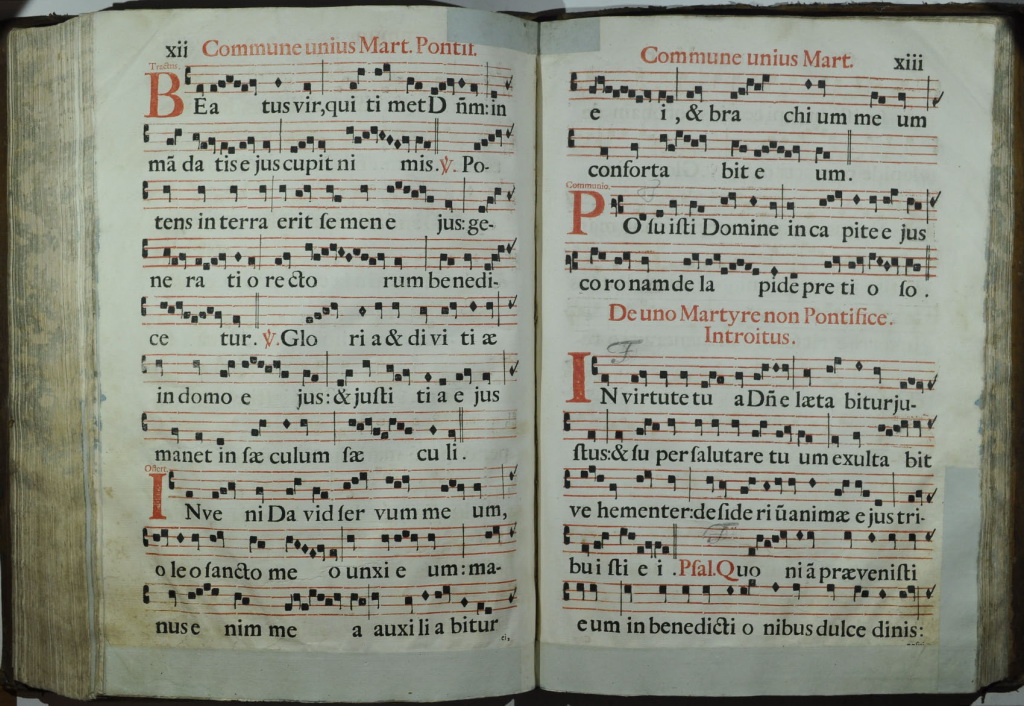 xii Commune unius Mart. Pontif.
Tractus.
BEa tus vir, qui ti met Dñm: in
mã da tis e jus cupit ni mis. ℣. Po-
tens in terra erit ſe men e jus: ge-
ne ra ti o re cto rum be nedi-
ce tur. ℣. Glo ri a & di vi ti æ
in domo e jus: & juſti ti a e jus
manet in ſæ culum ſæ cu li.
Offert.
INve ni Da vid ſer vum me um,
o le o ſancto me o unxi e um: ma-
nus e nim me a auxi li a bitur
ei,
Commune unius Mart. xiii
e i, & bra chi um me um
conforta bit e um.
Communio.
POſuiſti Domine in ca pite e jus
co ro nam de la pide pre ti o ſo.
De uno Martyre non Pontifice.
Introitus.
F
IN virtute tu a Dñe læta bitur ju-
ſtus: & ſu per ſalutare tu um exulta bit
ve hementer: deſide ri ũ animæ e jus tri-
F
bu i ſti e i. Pſal. Quo ni ã præveniſti
e um in benedicti o nibus dulce dinis: